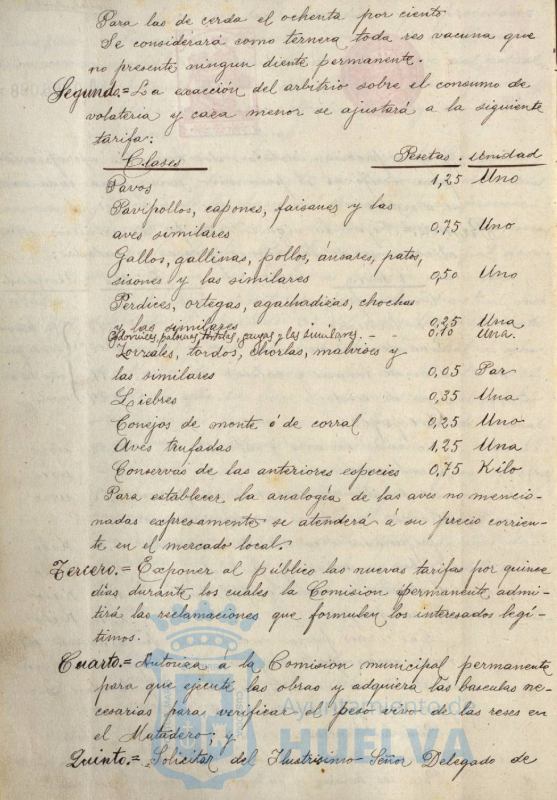 Para las de cerda el ochenta por ciento
Se considerará como ternera toda res vacuna que
no presente ningun diente permanente.
Segundo.= La exacción del arbitrio sobre el consumo de
volateria y caza menor se ajustará a la siguiente
tarifa:
Clases Pesetas. Unidad
Pavos 1,25 Uno
Pavipollos, capones, faisanes y las
aves similares 0,75 Uno
Gallos, gallinas, pollos, ánsares, patos,
sisones y las similares 0,50 Uno
Perdices, ortegas, agachadizas, chochas
y las similares 0,25 Una
Codornices, palomas, tórtolas, y las similares. - - 0,10 Una.
Zorzales, tordos, chorlas, malvises y
las similares 0,05 Par
Liebres 0,35 Una
Conejos de monte ó de corral 0,25 Uno
Aves trufadas 1,25 Una
Conservas de las anteriores especies 0,75 Kilo
Para establecer la analogía de las aves no mencio-
nadas expresamente se atenderá á su precio corrien-
te en el mercado local.
Tercero.= Exponer al público las nuevas tarifas por quince
días durante los cuales la Comision permanente admi-
tirá las reclamaciones que formulen los interesados legí-
timos.
Cuarto.= Autoriza á la Comision municipal permanente
para que ejecute las obras y adquiera las basculas ne-
cesarias para verificar el peso vivo de las reses en
el Matadero; y
Quinto.= Solicitar del Ilustrisimo Señor Delegado de
Ayuntamiento de
HUELVA